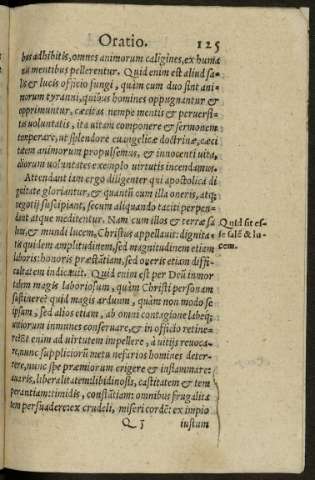 Oratio. 125
bus adhibitis, omnes animorum caligines, ex humanis mentibus pellerentur. Quid enim est aliud sa-
lis & lucis officio fungi, quàm cum duo sint ani-
morum tyranni, quibus homines oppugnantur &
opprimuntur, cæcitas nempe mentis & peruersi-
tas voluntatis, ita vitam componere & sermonem
temperare, ut splendore euangelicæ doctrinæ, cæci
tatem animorum propulsemus, & innocenti vita,
aliorum voluntates exemplo virtutis incendamus.
Attendant iam ergo diligenter qui apostolica di
gnitate gloriantur, & quantũ cum illa oneris, atq;
negotij suscipiant, secum aliquando taciti perpen-
dant atque meditentur. Nam cum illos & terræ sa
lẽ, & mundi lucem, Christus appellauit: dignita-
tis quidem amplitudinem, sed magnitudinem etiam
laboris: honoris præstãtiam, sed oneris etiam diffi-
cultatem indicauit. Quid enim est per Deũ inmor
talem magis laboriosum, quàm Christi personam
sustinere? quid magis arduum, quàm non modo se
ipsum, sed alios etiam, ab omni contagione labeq;
vitiorum inmunes conseruare, & in officio retine-
re? Et enim ad virtutem impellere, a vitijs reuoca-
re, nunc suppliciorũ metu nefarios homines deter-
rere, nunc spe præmiorum erigere & inflammare:
auaris, liberalitatem: libidinosis, castitatem & tem
perantiam: timidis, constãtiam: omnibus frugalita
tem persuadere: ex crudeli, misericordẽ: ex impio
Q 5 iustum
Quid sit es-
se salẽ & lu-
cem.